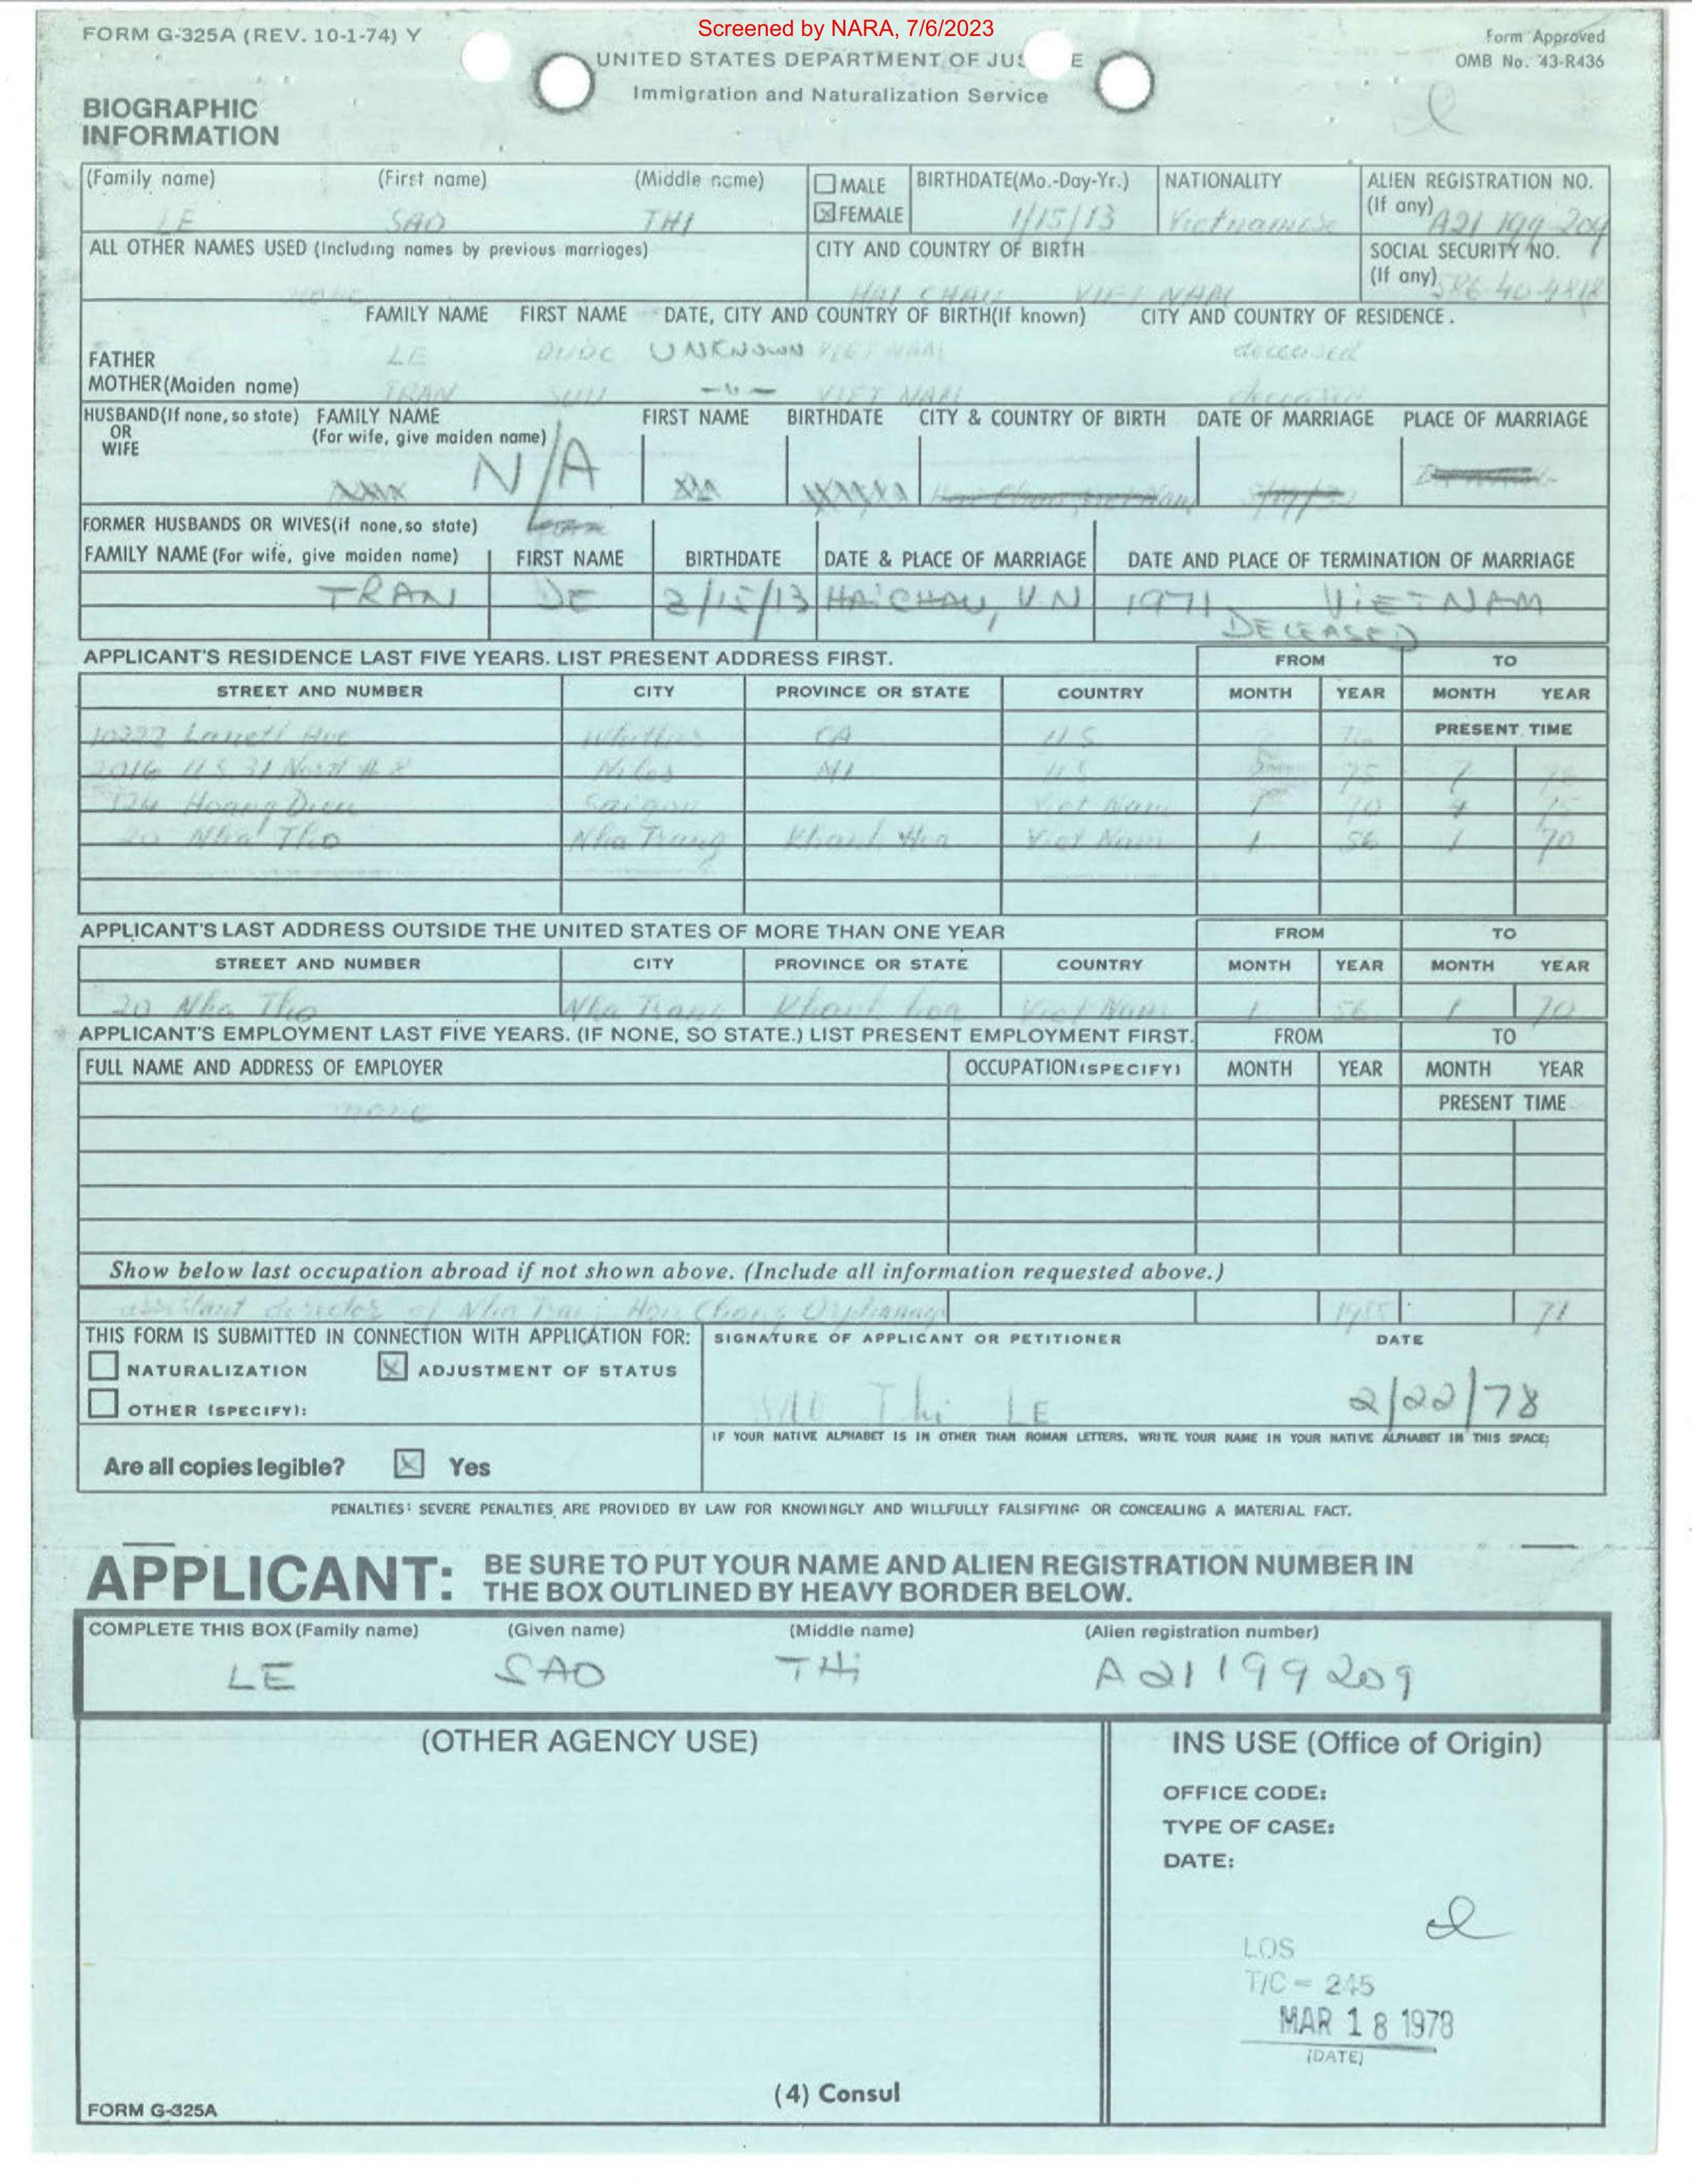 Screened by NARA, 7/6/2023
FORM G-325A (REV. 10-1-74) Y
Form Approved
OMB No. 43-R436
UNITED STATES DEPARTMENT OF JUS E
Immigration and Naturalization Service
BIOGRAPHIC
INFORMATION
(Family name) (First name) (Middle name) MALE BIRTHDATE(Mo.-Day-Yr.) NATIONALITY ALIEN REGISTRATION NO.
(If any)
FEMALE
LE SAO THI 1/15/13 Vietnamese A21 199 209
ALL OTHER NAMES USED (Including names by previous marriages) CITY AND COUNTRY OF BIRTH SOCIAL SECURITY NO.
(If any)
none HAI CHAU VIET NAM
FAMILY NAME FIRST NAME DATE, CITY AND COUNTRY OF BIRTH(If known) CITY AND COUNTRY OF RESIDENCE.
FATHER LE DUOC UNKNOWN VIET NAM deceased
MOTHER(Maiden name) TRAN -"- VIET NAM deceased
HUSBAND(If none, so state) FAMILY NAME FIRST NAME BIRTHDATE CITY & COUNTRY OF BIRTH DATE OF MARRIAGE PLACE OF MARRIAGE
OR (For wife, give maiden name)
WIFE
N/A
FORMER HUSBANDS OR WIVES(if none, so state)
FAMILY NAME (For wife, give maiden name) FIRST NAME BIRTHDATE DATE & PLACE OF MARRIAGE DATE AND PLACE OF TERMINATION OF MARRIAGE
TRAN DE 2/15/13 HAICHAU, V.N 1971 VIETNAM
DECEASED
APPLICANT'S RESIDENCE LAST FIVE YEARS. LIST PRESENT ADDRESS FIRST. FROM TO
STREET AND NUMBER CITY PROVINCE OR STATE COUNTRY MONTH YEAR MONTH YEAR
Ave Whittier CA U S PRESENT TIME
2016 U.S. 31 North Niles MI U.S. 75 7
124 Hoang Dieu Saigon Viet Nam 1 70 4 75
20 Nha Tho Nha Trang Khanh Hoa Viet Nam 1 56 1 70
APPLICANT'S LAST ADDRESS OUTSIDE THE UNITED STATES OF MORE THAN ONE YEAR FROM TO
STREET AND NUMBER CITY PROVINCE OR STATE COUNTRY MONTH YEAR MONTH YEAR
20 Nha Tho Nha Trang Khanh hoa Viet Nam 1 56 1 70
APPLICANT'S EMPLOYMENT LAST FIVE YEARS. (IF NONE, SO STATE.) LIST PRESENT EMPLOYMENT FIRST. FROM TO
FULL NAME AND ADDRESS OF EMPLOYER OCCUPATION(SPECIFY) MONTH YEAR MONTH YEAR
none PRESENT TIME
Show below last occupation abroad if not shown above. (Include all information requested above.)
assistant director of Nha Trang Hon Chong Orphanage 71
THIS FORM IS SUBMITTED IN CONNECTION WITH APPLICATION FOR: SIGNATURE OF APPLICANT OR PETITIONER DATE
NATURALIZATION ADJUSTMENT OF STATUS
OTHER (SPECIFY):
SAO Thi LE 2/22/78
IF YOUR NATIVE ALPHABET IS IN OTHER THAN ROMAN LETTERS, WRITE YOUR NAME IN YOUR NATIVE ALPHABET IN THIS SPACE:
Are all copies legible? Yes
PENALTIES: SEVERE PENALTIES ARE PROVIDED BY LAW FOR KNOWINGLY AND WILLFULLY FALSIFYING OR CONCEALING A MATERIAL FACT.
APPLICANT: BE SURE TO PUT YOUR NAME AND ALIEN REGISTRATION NUMBER IN
THE BOX OUTLINED BY HEAVY BORDER BELOW.
COMPLETE THIS BOX (Family name) (Given name) (Middle name) (Alien registration number)
LE SAO THi A21199209
(OTHER AGENCY USE) INS USE (Office of Origin)
OFFICE CODE:
TYPE OF CASE:
DATE:
LOS
T/C = 245
MAR 18 1978
(DATE)
(4) Consul
FORM G-325A